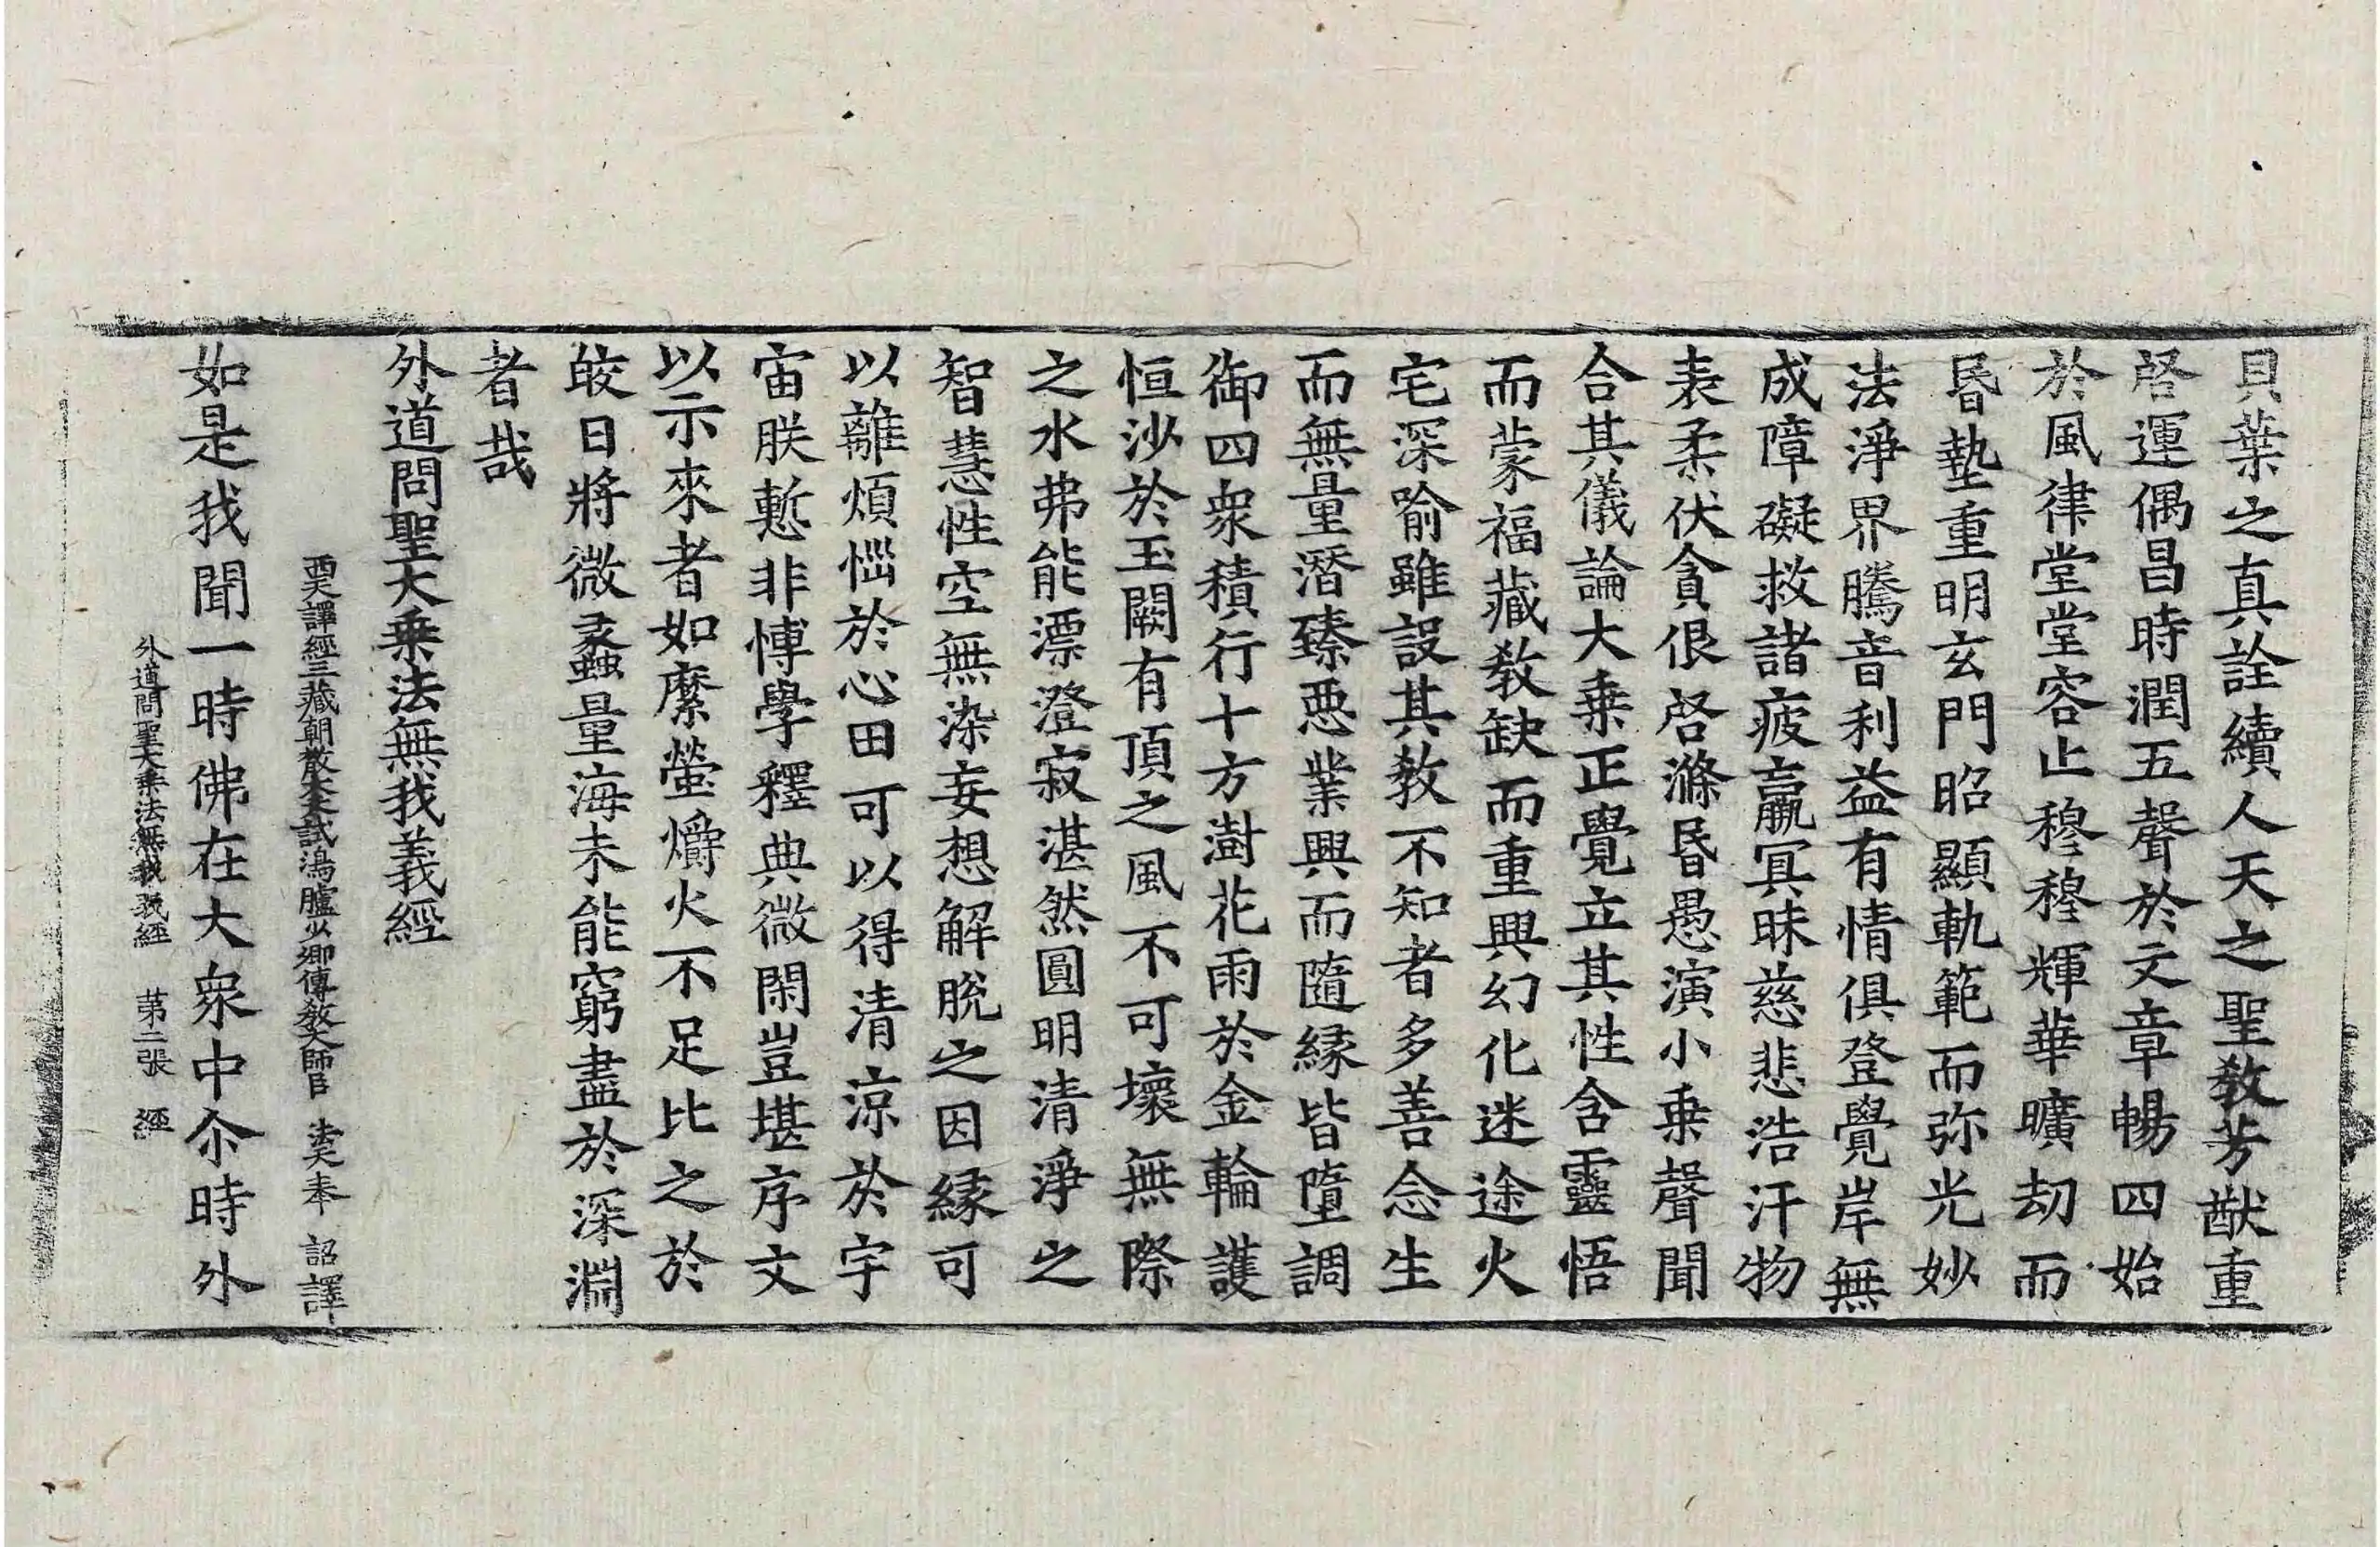 貝葉之真詮續人天之聖教芳猷重
啓運偶昌時潤五聲於文章暢四始
於風律堂堂容止穆穆輝華曠劫而
昬墊重明玄門昭顯軌範而弥光妙
法淨界騰音利益有情俱登覺岸無
成障礙救諸疲羸冥昧慈悲浩汗物
表柔伏貪佷啓滌昬愚演小乗聲聞
合其儀論大乗正覺立其性含靈悟
而蒙福藏教缺而重興幻化迷途火
宅深喻雖設其教不知者多善念生
而無量潛臻悪業興而隨縁皆墮調
御四衆積行十方澍花雨於金輪護
恒沙於玉闕有頂之風不可壞無際
之水弗能漂澄寂湛然圓明清淨之
智慧性空無染妄想解脫之因縁可
以離煩惱於心田可以得清涼於宇
宙朕慙非博學釋典微閑豈堪序文
以示來者如縻螢爝火不足比之於
皎日將微蠡量海未能窮盡於深淵
者哉
外道問聖大乗法無我義經
西天譯經三藏朝散大夫試鴻臚少卿傳教大師臣 法天奉 詔譯
如是我聞一時佛在大衆中尒時外
外道問聖大乗法無我義經 苐二張 經